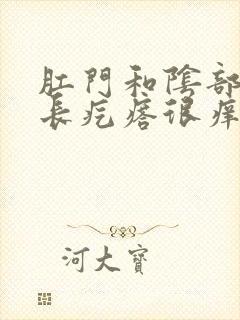 肛門和陰部
長疙瘩很癢
河大寶